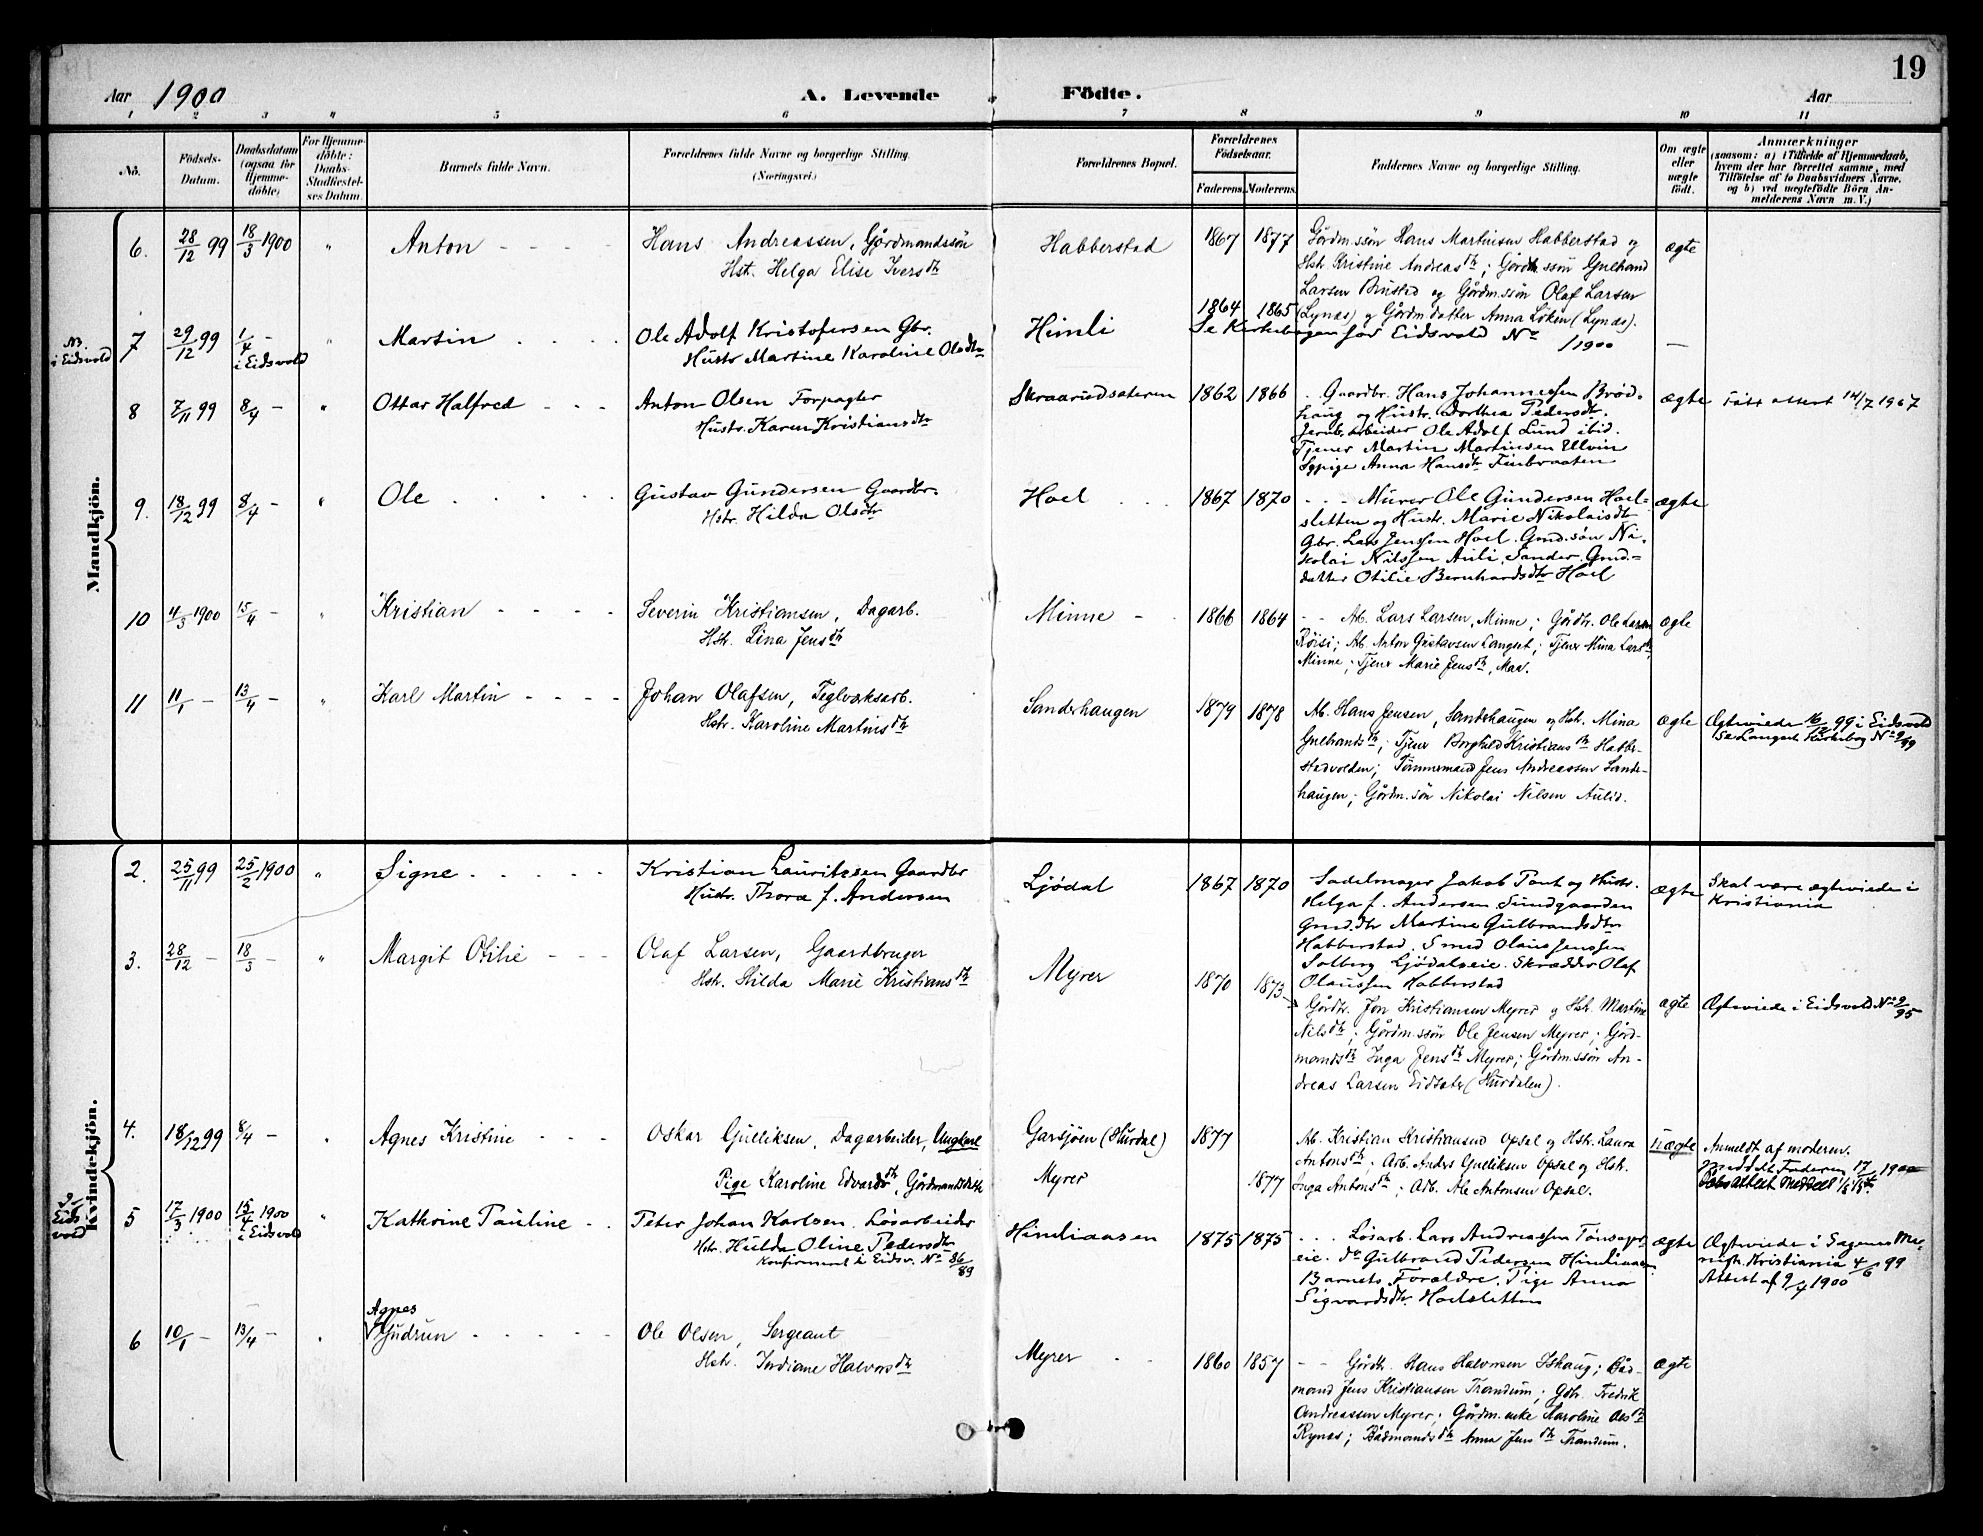 19
Aar 1900 A. Levende Födte. Aar
1 2 3 4 5 6 7 8 9 10 11
No.
Födsels-Datum.
Daabsdatum (ogsaa for Hjemme-döbte)
For Hjemme-döbte: Daabs-Stadfæstel-ses Datum.
Barnets fulde Navn.
Forældrenes fulde Navne og borgerlige Stilling.
(Næringsvei.)
Forældrenes Bopæl.
Forældrenes Födselsaar.
Faderens. Moderens.
Faddernes Navne og borgerlige Stilling.
Om ægte eller uægte födt.
Anmærkninger
(saasom: a) i Tilfælde af Hjemmedaab,
hvem der har forrettet samme, med
Tilföielse af to Daabsvidners Navne,
og b) ved uægtefödte Börn An-
melderens Navn m. V.)
Mandkjön.
6. 28/12 99 18/3 1900 " Anton
Hans Andreassen, Gårdmandssön
Hst. Helga Elise Iversdtr
Habberstad 1867 1877
Gårdm.ssön Hans Martinsen Habberstad og
Hst. Kristine Andreasdtr; Gårdm.ssön Gulbrand
Larsen Brusted og Gårdm.ssön Olaf Larsen
(Lynæs) og Gårdm.datter Anna Löken (Lynæs).
ægte
i Eidsvold
7 29/12 99 1/4 – i Eidsvold " Martin
Ole Adolf Kristofersen Gbr.
Hustr Martine Karoline Olsdtr
Himli 1864 1865
Se Kirkebogen for Eidsvold No
/1900
–
8 7/11 99 8/4 – " Ottar Halfred
Anton Olsen Forpagter
Hustr. Karen Kristiansdtr
Skraarudsæteren 1862 1866
Gaardbr. Hans Johannessen Bröd-
haug og Hustr. Dorthea Pedersdtr.
Jernb.arbeider Ole Adolf Lund ibid.
Tjener Martin Martinsen Ullvin
Sypige Anna Hansdtr Finbraaten
ægte Født attest 14/7 1967
9. 18/12 99 8/4 – " Ole
Gustav Gundersen Gaardbr.
Hstr. Hilda Olsdtr
Hoel 1867 1870
Murer Ole Gundersen Hoel-
sletten og Hustr. Marie Nikolaisdtr
Gbr. Lars Jenssen Hoel. Gmd.sön Ni-
kolai Nilssen Auli, Sander. Gmd.-
datter Otilie Bernhardsdtr Hoel
ægte
10 4/3 1900 15/4 – " Kristian
Severin Kristiansen, Dagarb.
Hst. Lina Jensdtr
Minne 1866 1864
Ab. Lars Larsen, Minne; Gårdbr. Ole Larsen
Röisi; Ab. Anton Gustavsen Langset; Tjener Mina Larsdtr
Minne; Tjener Marie Jensdtr,
ægte
11 11/1 – 13/4 – " Karl Martin
Johan Olafsen, Teglverksarb.
Hstr. Karoline Martinsdtr
Sanderhaugen 1874 1878
Ab. Hans Jensen, Sanderhaugen og Hst. Mina
Gulbrandsdtr; Tjener Borghild Kristiansdtr Habber-
stadvolden; Tömmermand Jens Andreassen Sander-
haugen; Gårdm.sön Nikolai Nilsen Aulid.
ægte Ægteviede 99 i Eidsvold
Se Langset Kirkebog No 9/99
Kvindekjön.
2. 25/11 99 25/2 1900 " Signe
Kristian Lauritzsen Gaardbr
Hustr. Thora f. Andersen
Ljödal 1867 1870
Sadelmager Jakob Tout og Hustr.
Helga f. Andersen Sundgaarden
Gmd.dtr Martine Gulbrandsdtr
Habberstad. Smed Olaus Jenssen
Solberg Ljödalseie. Skrædder Olaf
Olaussen Habberstad
ægte Skal være ægteviede i
Kristiania
3. 28/12 – 18/3 – " Margit Otilie
Olaf Larsen, Gaardbruger
Hst. Hilda Marie Kristiansdtr
Myrer 1870 1873
Gårdbr. Jon Kristiansen Myrer og Hst. Martine
Nilsdtr; Gårdm.ssön Ole Jensen Myrer; Gård-
mandsdtr Inga Jensdtr Myrer; Gårdm.ssön An-
dreas Larsen Eidsæter (Hurdalen).
ægte Ægteviede i Eidsvold No 9/95
4. 18/12 99 8/4 – " Agnes Kristine
Oskar Gulliksen, Dagarbeider, Ungkarl
Pige Karoline Edvardsdtr, Gårdmandsdatter
Garsjøen (Hurdal) 1877
Myrer 1877
Ab. Kristian Kristiansen Opsal og Hst. Laura
Antonsdtr; Arb. Anders Gulliksen Opsal og Hst.
Inga Antonsdtr; Arb. Ole Antonsen Opsal.
uægte Anmeldt af moderen.
Meddelt Faderen 17/ 1900
i Eidsvold
5 17/3 1900 15/4 1900 i Eidsvold " Kathrine Pauline
Peter Johan Karlsen. Løsarbeider
Hstr. Hulda Oline Pedersdtr
Konfirmeret i Eidsv. No 86/89
Himliaasen 1875 1875
Løsarb. Lars Andreassen Tönsager-
eie. do Gulbrand Pedersen Himliaasen
Barnets Forældre. Pige Anna
Sigvardsdtr. Hoelsletten
ægte Ægteviede i Sagene Me-
nigh. Kristiania 4/6 99
Attest af 9/4 1900
6 10/1 – 13/4 – " Agnes
Gudrun
Ole Olsen, Sergeant
Hst. Jordiane Halvorsdtr
Myrer 1860 1857
Gårdbr. Hans Halvorsen Ishaug; Båd-
mand Jens Kristiansen Trandum; Gbr. Fredrik
Andreassen Myrer; Gårdm.enke Karoline Olsdtr
Rynæs; Bådmandsdtr Anna Jensdtr Trandum.
ægte